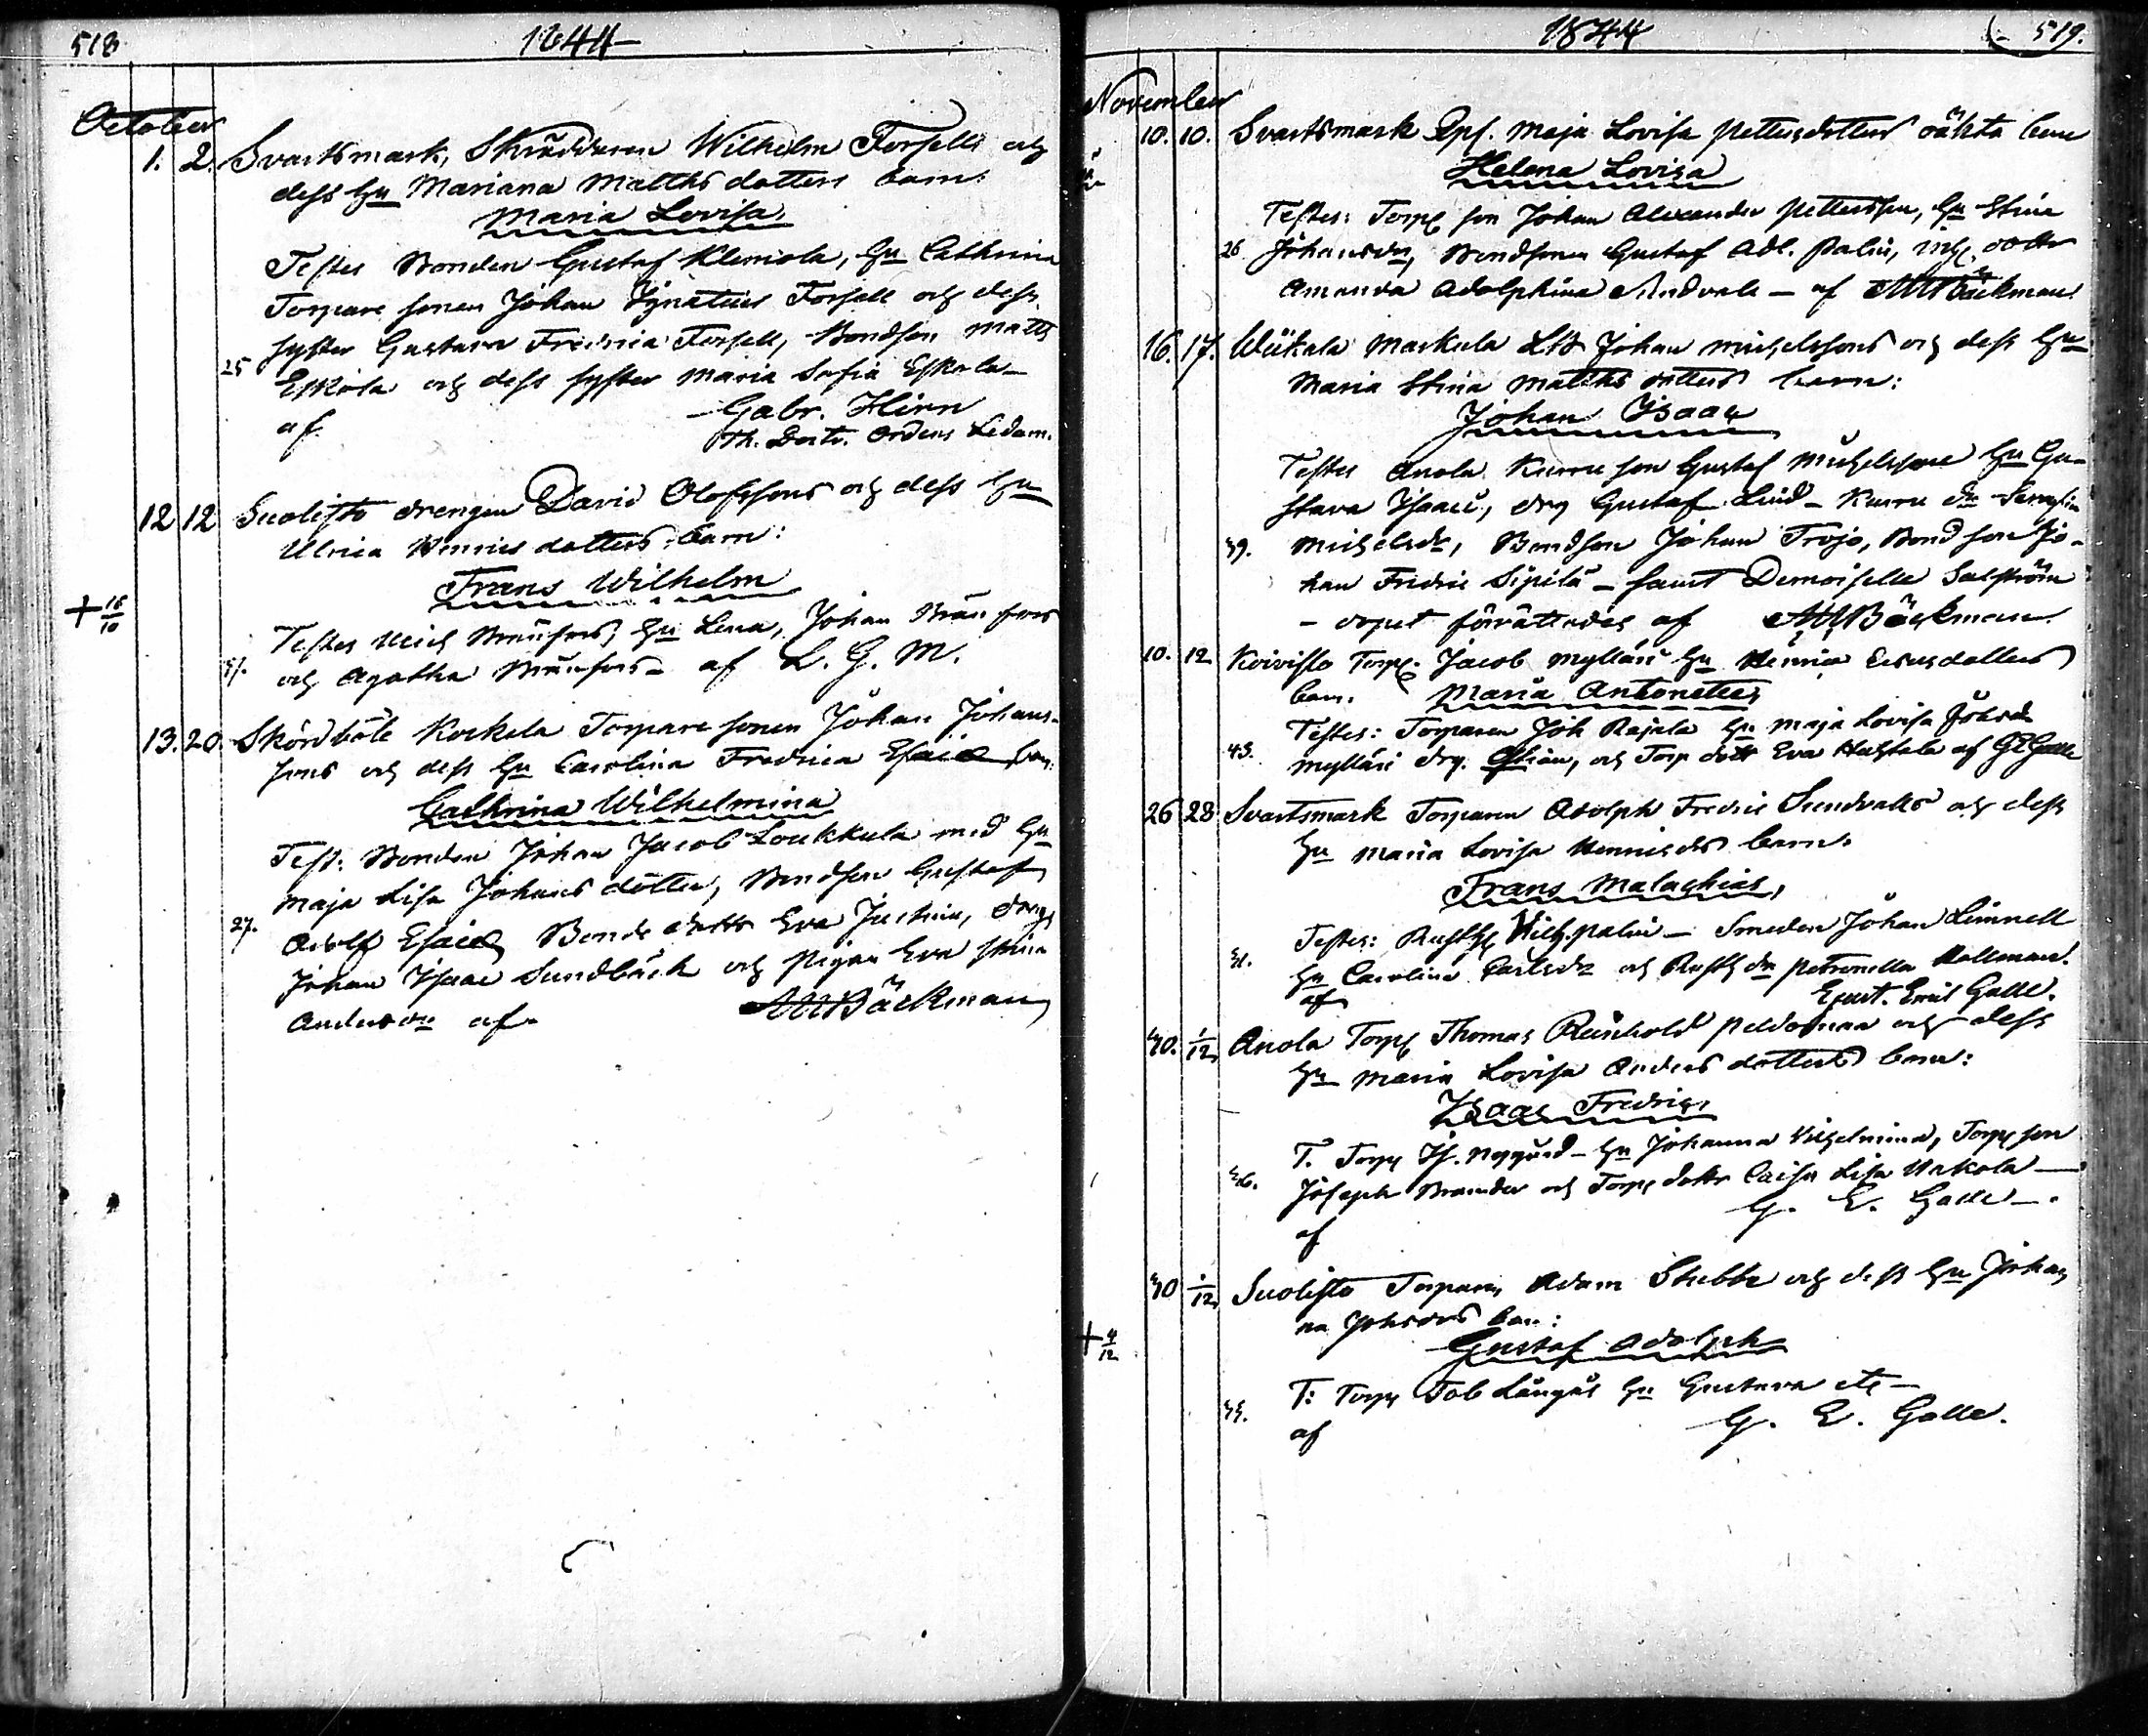 518
1844
October
1. 2. Svartsmark, Skräddaren Wilhelm Forsells och
dess Hu Mariana Matths dotters barn:
Maria Lovisa,
Testes Bonden Gustaf Klemola, Hu Cathrina
Torpare sonen Johan Ignatius Forsell och dess
syster Gustava Fredrica Forsell, Bondson Matts
25 Eskola och dess syster Maria Sofia Eskola
af Gabr. Hirn
Th. Ordens Ledam.
12 12 Suolisto drengen David Olofssons och dess Hu
Ulrica Henrics dotters barn:
Frans Wilhelm
+ 18/10
Testes Mich Hu Lena, Johan
31. och Agatha af L. G. M.
13. 20. Skördböle Kockela Torpare sonen Johan Johans-
sons och dess Hu Carolina Fredrica Esaiæ barn:
Cathrina Wilhelmina
Test: Bonden Johan Jacob Loukkula med Hu
Maja Lisa Johans dotter, Bondson Gustaf
27. Adolf Esaiæ Bonde dottr Eva Justina, drng
Johan Isaac Sundbäck och pigan Eva Stina
Anders dr af Bäckman
1844
519.
November
10. 10. Svartsmark Maja Lovisa Petters dotters oäkta barn
Helena Lovisa
Testes: Torp son Johan Alexander Pettersson, Hu Stina
26 Johansdr, Bondsonen Gustaf Adl. Palin, dottr
Amanda Adolphina Sundvall – af Bäckman
16. 17. Wiikala Markula Johan Michelssons och dess Hu
Maria Stina Matths dotters barn:
Johan Isaac
Testes Anola Kurru son Gustaf Michelsson Hu Gu-
stava Isaacs, drg Gustaf Lind – Kurru dr
39. Michelsdr, Bondson Johan Trojo, Bondson Jo-
han Fredric Sipilä – samt Demoiselle Salström
– dopet förrättades af Bäckman
10. 12 Koivisto Torp. Jacob Mylläri Hu Henrica Ersdotters
barn. Maria Antonetta,
Testes: Torparen Joh Rajala Hu Maja Lovisa Johsdr
43. Mylläri drg. och Torp dottr Eva af G E Galle
26 28 Svartsmark Torparen Adolph Fredric Sundvalls och dess
Hu Maria Lovisa Henricsdrs barn.
Frans Malachias,
Testes: Rusth Wilh. Palin – Smeden Johan Limnell
31. Hu Carolina Carlsdr och Rusth dr Petronella Hallman.
af Gust. Emil Galle.
30. 1/12 Anola Torp Thomas Reinhold Peldomaa och dess
Hu Maria Lovisa Anders dotters barn:
Isaac Fredric,
T. Torp Is. Nygård – Hu Johanna Vilhelmina, Torp son
36. Joseph Brander och Torp dottr Caisa Lisa Uskola –
af G. E. Galle –.
30 1/12 Suolisto Torparen Adam Stubbe och dess Hu Johan
na Johsdrs barn:
+ 4/12
Gustaf Adolph
T: Torp Tob Långås Hu Gustava etc –
33. af G. E. Galle.